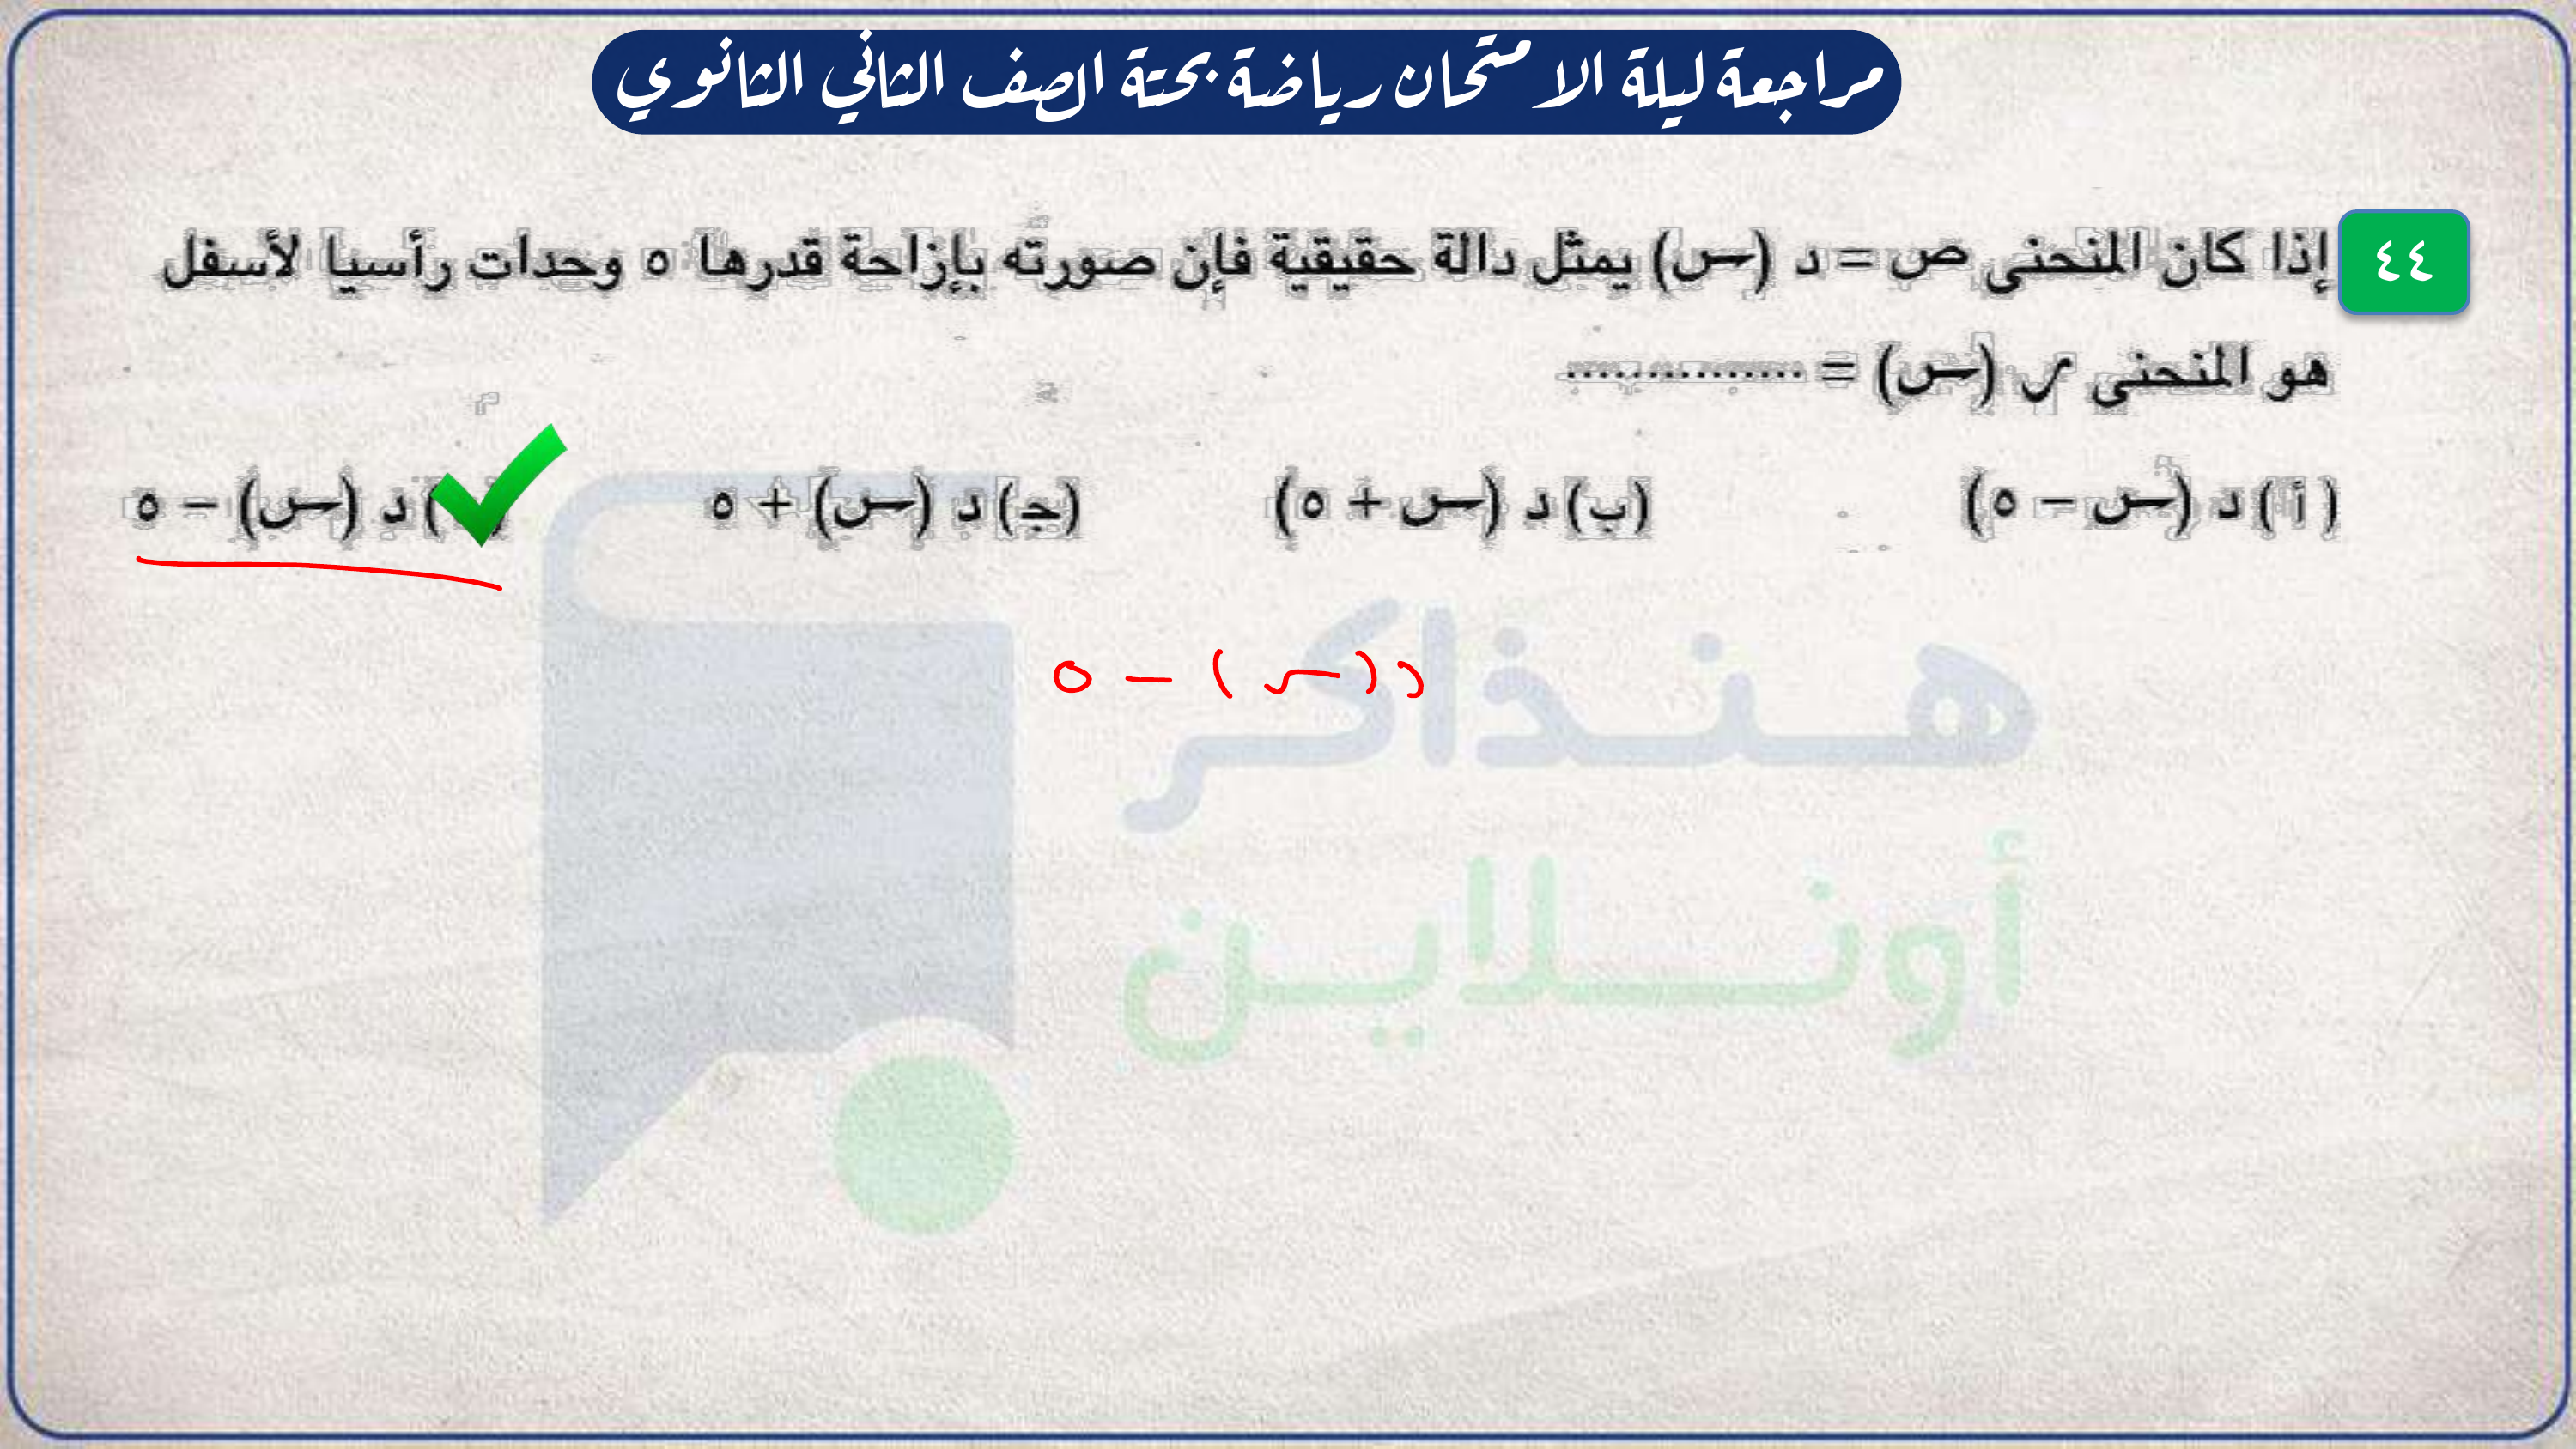 مراجعة ليلة الامتحان رياضة بحتة الصف الثاني الثانوي
٤٤
إذا كان المنحنى ص = د (س) يمثل دالة حقيقية فإن صورته بإزاحة قدرها ٥ وحدات رأسيا لأسفل
هو المنحنى ر (س) = ...............
(أ) د (س – ٥)
(ب) د (س + ٥)
(جـ) د (س) + ٥
) د (س) – ٥
د (س) – ٥
هنذاكر
أونلاين